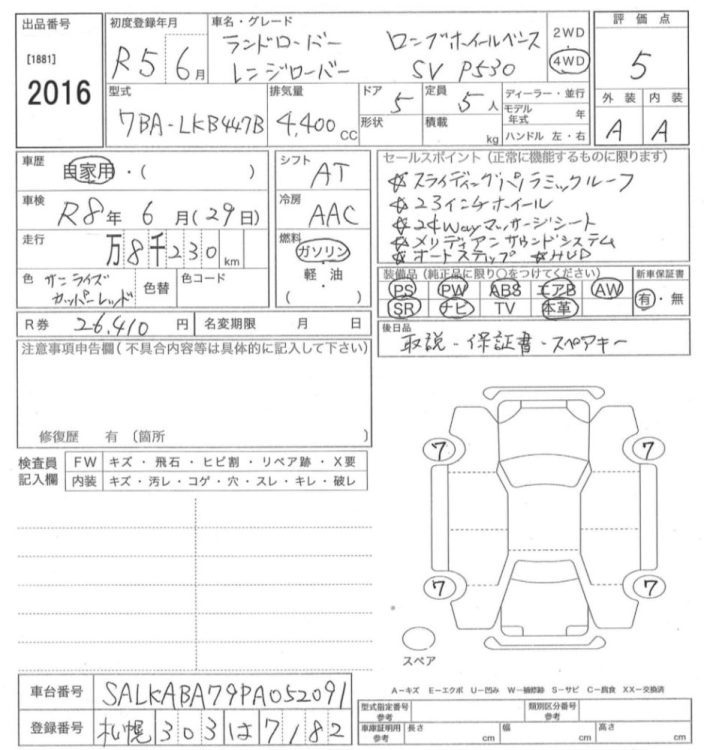 出品番号
[1881]
2016
初度登録年月
R5 6月
車名・グレード
ランドローバー ロングホイールベース
レンジローバー SV P530
2WD
4WD
評価点
5
外装 内装
A A
型式
7BA-LKB447B
排気量
4,400 CC
ドア
5
形状
定員
5人
積載
kg
ディーラー・並行
モデル年式 年
ハンドル 左・右
車歴
自家用・( )
車検
R8年 6月(29日)
走行
万8千230 km
色 サンライズ
カッパーレッド
色替
色コード
シフト
AT
冷房
AAC
燃料
ガソリン
軽・油
( )
セールスポイント(正常に機能するものに限ります)
☆スライディングパノラミックルーフ
☆23インチホイール
☆24wayマッサージシート
☆メリディアンサウンドシステム
☆オートステップ ☆HUD
装備品(純正品に限り○をつけてください)
PS PW ABS エアB AW
SR ナビ TV 本革
新車保証書
有・無
R券 26,410円
名変期限 月 日
後日品
取説・保証書・スペアキー
注意事項申告欄(不具合内容等は具体的に記入して下さい)
修復歴 有 (箇所 )
検査員
記入欄
FW キズ・飛石・ヒビ割・リペア跡・X要
内装 キズ・汚レ・コゲ・穴・スレ・キレ・破レ
7 7
7 7
スペア
A−キズ E−エクボ U−凹み W−補修跡 S−サビ C−腐食 XX−交換済
車台番号 SALKABA79PA052091
登録番号 札幌 303 は 7182
型式指定番号
参考
類別区分番号
参考
車庫証明用
参考
長さ cm
幅 cm
高さ cm